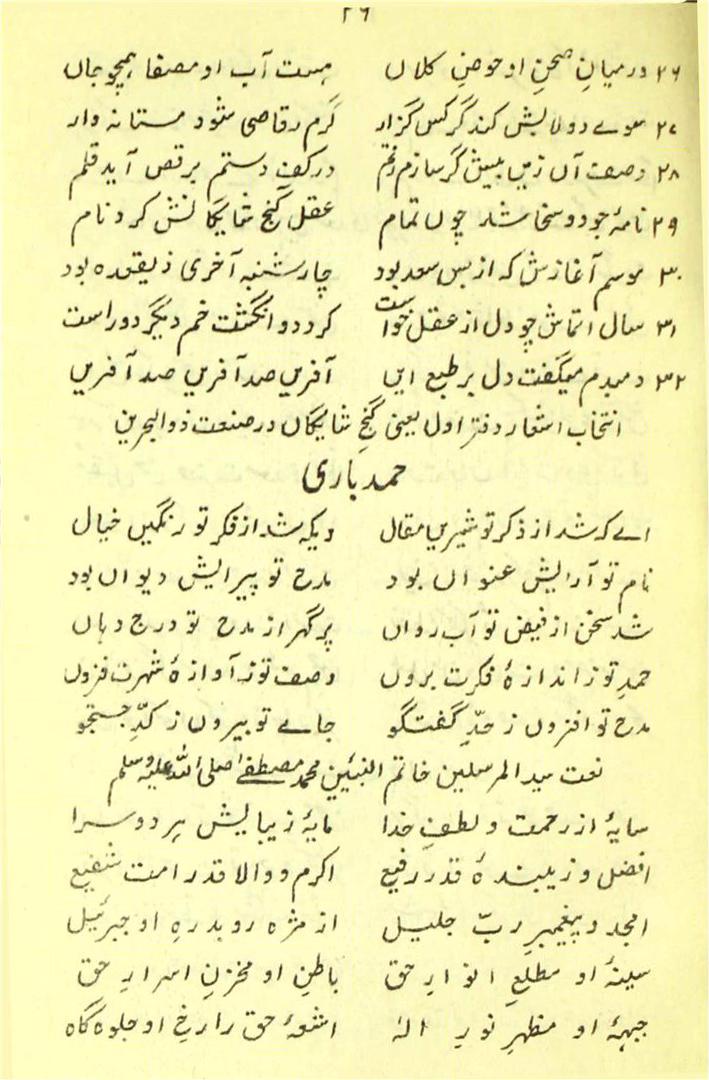 ۲۶
۲۶ درمیانِ صحنِ او حوضِ کلاں ہست آب او مصفا ہمچو جاں
۲۷ سوے دولابش کند گر کس گزار گرم رقاصی شود مستانہ وار
۲۸ وصف آں زیں بیش گر سازم رقم در کفِ دستم برقص آید قلم
۲۹ نامۂ جود و سخا شد چوں تمام عقل گنج شایگانش کرد نام
۳۰ موسم آغازش کہ از بس سعد بود چار شنبہ آخری ذیقعدہ بود
۳۱ سال اتماش چو دل از عقل خواست کرد دو انگشت خم دیگر دو راست
۳۲ دمبدم میگفت دل بر طبع ایں آفریں صد آفریں صد آفریں
انتخاب اشعار دفتر اول یعنی گنجِ شایگاں در صنعت ذوالبحرین
حمد باری
اے کہ شد از ذکر تو شیریں مقال ویکہ شد از فکر تو رنگیں خیال
نام تو آرایش عنواں بود مدح تو پیرایش دیواں بود
شد سخن از فیض تو آب رواں پر گہر از مدح تو درج دہاں
حمدِ تو ز اندازۂ فکرت بروں وصف تو ز آوازۂ شہرت فزوں
مدح تو افزوں ز حدِّ گفتگو جاے تو بیروں ز کدِّ جستجو
نعت سید المرسلین خاتم النبیّین محمد مصطفےٰ صلی اللہ علیہ وسلم
سایۂ از رحمت و لطفِ خدا مایۂ زیبایش ہر دوسرا
افضل و زیبندۂ قدر رفیع اکرم و والا قدر امت شفیع
امجد و پیغمبرِ ربّ جلیل از مژہ روبد رہِ او جبرئیل
سینۂ او مطلعِ انوارِ حق باطنِ او مخزنِ اسرارِ حق
جبہۂ او مظہرِ نورِ الٰہ اشعۂ حق را رخِ او جلوہ گاہ